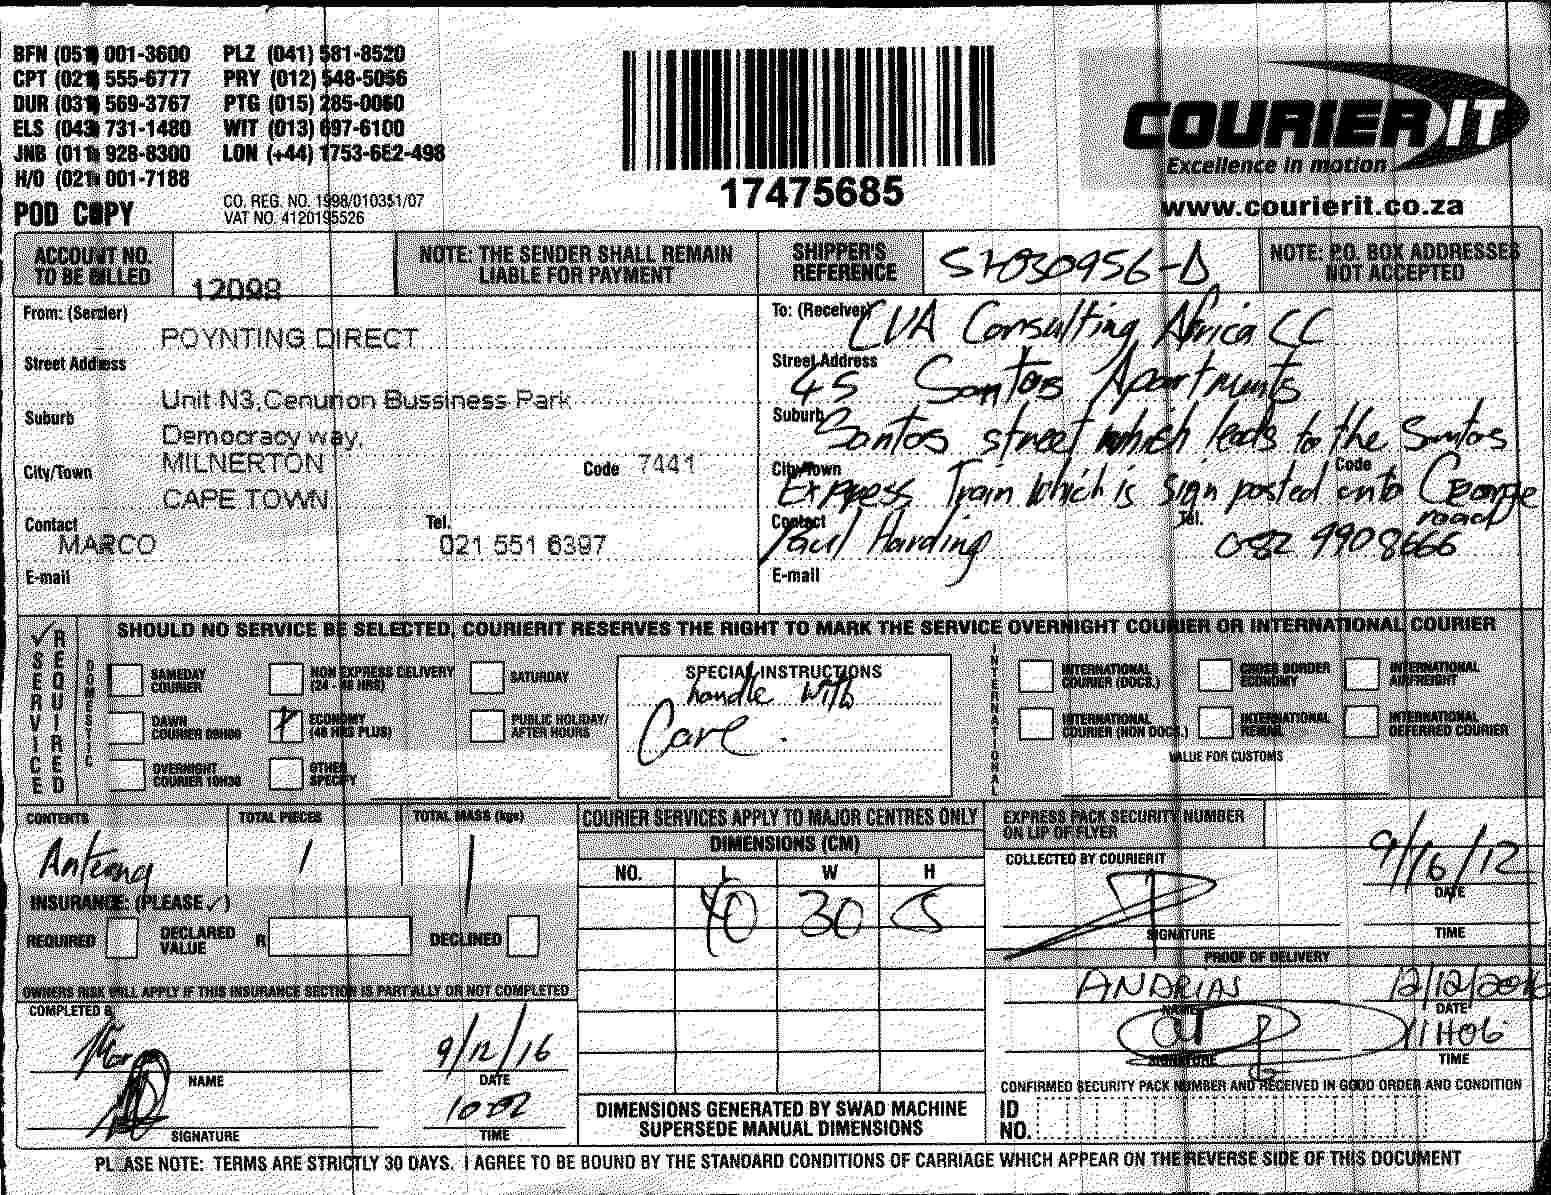 BFN (051) 001-3600 PLZ (041) 581-8520
CPT (021) 555-6777 PRY (012) 548-5056
DUR (031) 569-3767 PTG (015) 285-0060
ELS (043) 731-1480 WIT (013) 697-6100
JNB (011) 928-8300 LON (+44) 1753-682-498
H/O (021) 001-7188
POD COPY
CO. REG. NO. 1998/010351/07
VAT NO. 4120195526
17475685
COURIER IT
Excellence in motion
www.courierit.co.za
ACCOUNT NO. TO BE BILLED
12098
NOTE: THE SENDER SHALL REMAIN LIABLE FOR PAYMENT
SHIPPER'S REFERENCE
NOTE: P.O. BOX ADDRESSES NOT ACCEPTED
From: (Sender)
POYNTING DIRECT
Street Address
Unit N3,Cenurion Bussiness Park
Suburb
Democracy way,
City/Town MILNERTON Code 7441
CAPE TOWN
Contact MARCO Tel. 021 551 6397
E-mail
To: (Receiver) CVA Consulting Africa CC
Street Address 45 Santos Apartments
Suburb Santos street which leads to the Santos
City/Town Code
Express Train which is sign posted onto George road
Contact Paul Harding Tel. 082 990 8666
E-mail
SERVICE REQUIRED
SHOULD NO SERVICE BE SELECTED, COURIERIT RESERVES THE RIGHT TO MARK THE SERVICE OVERNIGHT COURIER OR INTERNATIONAL COURIER
DOMESTIC
SAMEDAY COURIER
NON EXPRESS DELIVERY (24 - 48 HRS)
SATURDAY
DAWN COURIER 09H00
ECONOMY (48 HRS PLUS)
PUBLIC HOLIDAY/ AFTER HOURS
OVERNIGHT COURIER 10H30
OTHER SPECIFY
SPECIAL INSTRUCTIONS
handle with
Care.
INTERNATIONAL
INTERNATIONAL COURIER (DOCS.)
CROSS BORDER ECONOMY
INTERNATIONAL AIRFREIGHT
INTERNATIONAL COURIER (NON DOCS.)
INTERNATIONAL REMAIL
INTERNATIONAL DEFERRED COURIER
VALUE FOR CUSTOMS
CONTENTS TOTAL PIECES TOTAL MASS (kgs)
1 1
INSURANCE: (PLEASE ✓)
REQUIRED DECLARED VALUE R DECLINED
OWNERS RISK WILL APPLY IF THIS INSURANCE SECTION IS PARTIALLY OR NOT COMPLETED
COURIER SERVICES APPLY TO MAJOR CENTRES ONLY
DIMENSIONS (CM)
NO. L W H
40 30 5
DIMENSIONS GENERATED BY SWAD MACHINE SUPERSEDE MANUAL DIMENSIONS
COMPLETED BY
NAME
9/12/16
DATE
SIGNATURE
TIME
EXPRESS PACK SECURITY NUMBER ON LIP OF FLYER
COLLECTED BY COURIERIT
9/16/12
DATE
SIGNATURE TIME
PROOF OF DELIVERY
ANDRIAS 12/12/2016
NAME DATE
11H06
SIGNATURE TIME
CONFIRMED SECURITY PACK NUMBER AND RECEIVED IN GOOD ORDER AND CONDITION
ID NO.
PLEASE NOTE: TERMS ARE STRICTLY 30 DAYS. I AGREE TO BE BOUND BY THE STANDARD CONDITIONS OF CARRIAGE WHICH APPEAR ON THE REVERSE SIDE OF THIS DOCUMENT